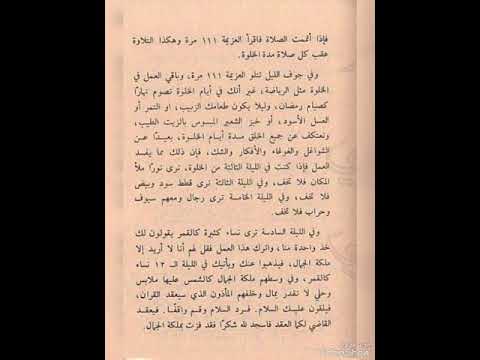 فإذا أتممت الصلاة فاقرأ العزيمة ١١١ مرة وهكذا التلاوة
عقب كل صلاة مدة الخلوة.
وفي جوف الليل تتلو العزيمة ١١١ مرة، وباقي العمل في
الخلوة مثل الرياضة، غير أنك في أيام الخلوة تصوم نهارًا
كصيام رمضان، وليلا يكون طعامك الزبيب، او التمر أو
العسل الأسود، أو خبز الشعير المبسوس بالزيت الطيب،
وتعتكف عن جميع الخلق مدة أيام الخلوة، بعيدًا عن
الشواغل والغوغاء والأفكار والشك، فإن ذلك مما يفسد
العمل فإذا كنت في الليلة الثالثة من الخلوة، ترى نورًا ملأ
المكان فلا تخف، وفي الليلة الثالثة ترى قطط سود وبيض
فلا تخف، وفي الليلة الخامسة ترى رجال ومعهم سيوف
وحراب فلا تخف.
وفي الليلة السادسة ترى نساء كثيرة كالقمر يقولون لك
خذ واحدة منا، واترك هذا العمل فقل لهم أنا لا أريد إلا
ملكة الجمال، فيذهبوا عنك ويأتيك في الليلة الـ ١٢ نساء
كالقمر، وفي وسطهم ملكة الجمال كالشمس عليها ملابس
وحلي لا تقدر بمال وخلفهم المأذون الذي سيعقد القران،
فيلقون عليك السلام. فرد السلام وقم واقفًا. فيعقد
القاضي لكما العقد فاسجد لله شكرًا فقد فزت بملكة الجمال.